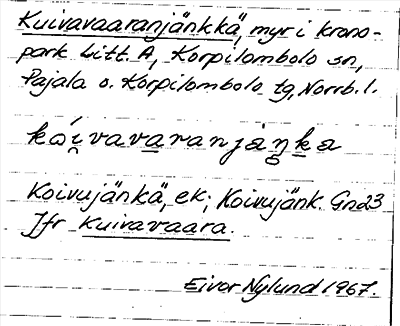 Kuivavaaranjänkkä, myr i krono-
park Litt. A, Korpilombolo sn,
Pajala o. Korpilombolo tg, Norrb. l.
kɷi̯vavaranjäŋka
Koivujänkä, ek; Koivujänk. Gn23
Jfr Kuivavaara.
Eivor Nylund 1967.